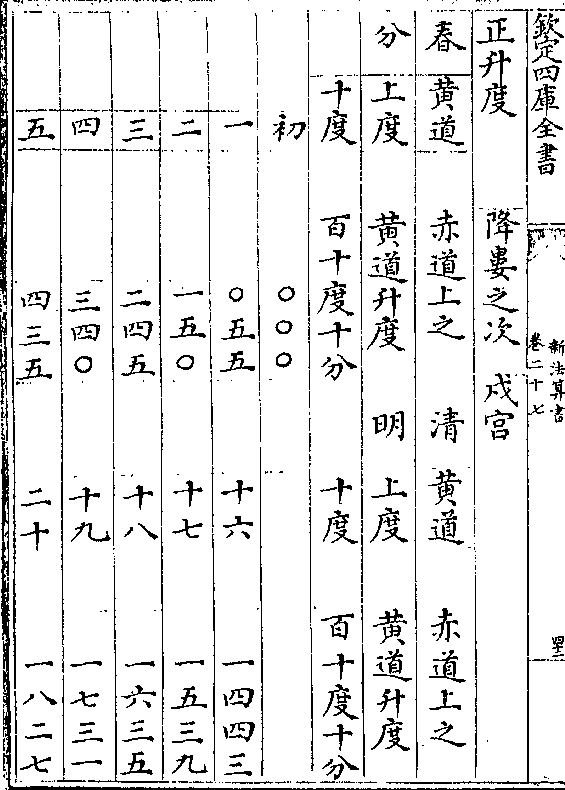 欽定四庫全書
新法算書
卷二十七
正升度 降婁之次 戌宮
春 黄道 赤道上之 清 黄道 赤道上之
分 上度 黄道升度 明 上度 黄道升度
十度 百十度十分 十度 百十度十分
初 〇〇〇
一 〇五五 十六 一四四三
二 一五〇 十七 一五三九
三 二四五 十八 一六三五
四 三四〇 十九 一七三一
五 四三五 二十 一八二七